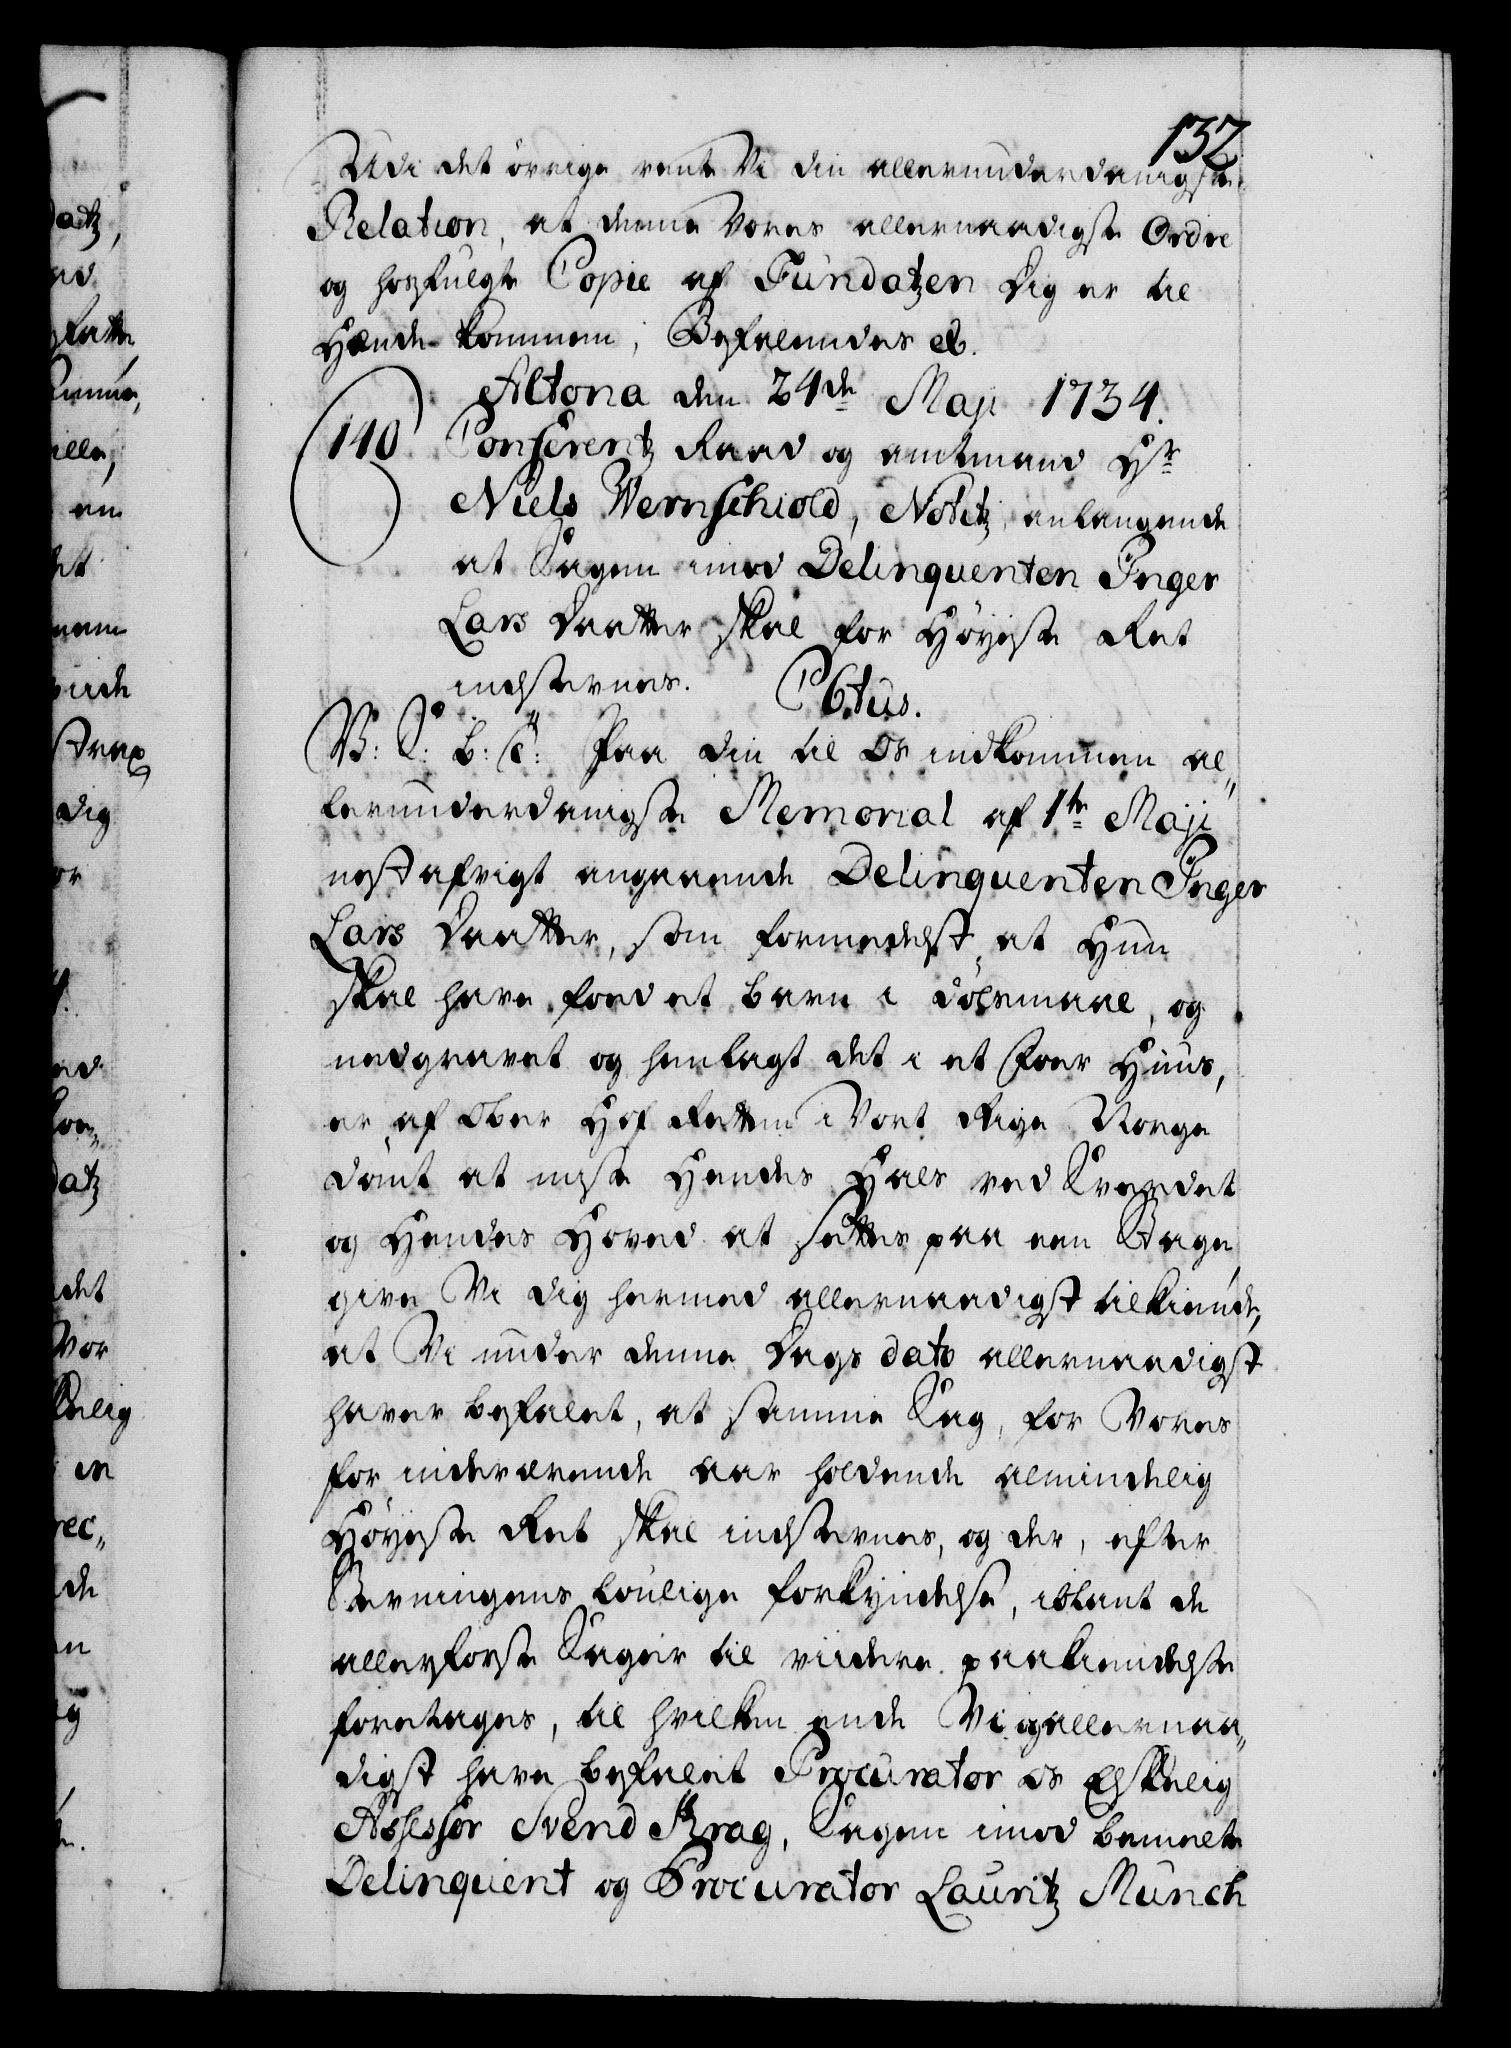 132
Udi det övrige vente Vi din allerunderdanigste
Relation, at denne Vores allernaadigste Ordre
og hosfulgte Copie af Fundatzen Dig er til
Hænde kommen; Befalendes etc.
Altona den 24de Maji 1734.
140 Conferentz Raad og amtmand Hr
Niels Wernschiold, Notitz, anlangende
at Sagen imod Delinquenten Inger
Lars Daatter skal for Höyeste Ret
indstevnes. PCtus.
V: S: b: C: Paa din til Os indkommen al„
lerunderdanigste Memorial af 1te Maji
nestafvigt angaaende Delinquenten Inger
Lars Daatter, som formedelst, at Hun
skal have föed et barn i dölgsmaal, og
nedgravet og henlagt det i et Foer Huus,
er af Ober Hof Retten i Vort Rige Norge
dömt at miste Hendes Hals ved Sverdet
og Hendes Hoved at settes paa een Stage,
give Vi dig hermed allernaadigst tilkiende,
at Vi under denne Dags dato allernaadigst
haver befalet, at samme Sag, for Vores
for indeværende aar holdende almindelig
Höyeste Ret skal indstevnes, og der, efter
Stevningens loulige forkyndelse, iblant de
allerförste Sager til viidere paakiendelse
foretages, til hvilken ende Vi og allernaa„
digst have befalet Procurator Os Elskelig
Assessor Svend Krag, Sagen imod bemelte
Delinquent og Procurator Lauritz Munch